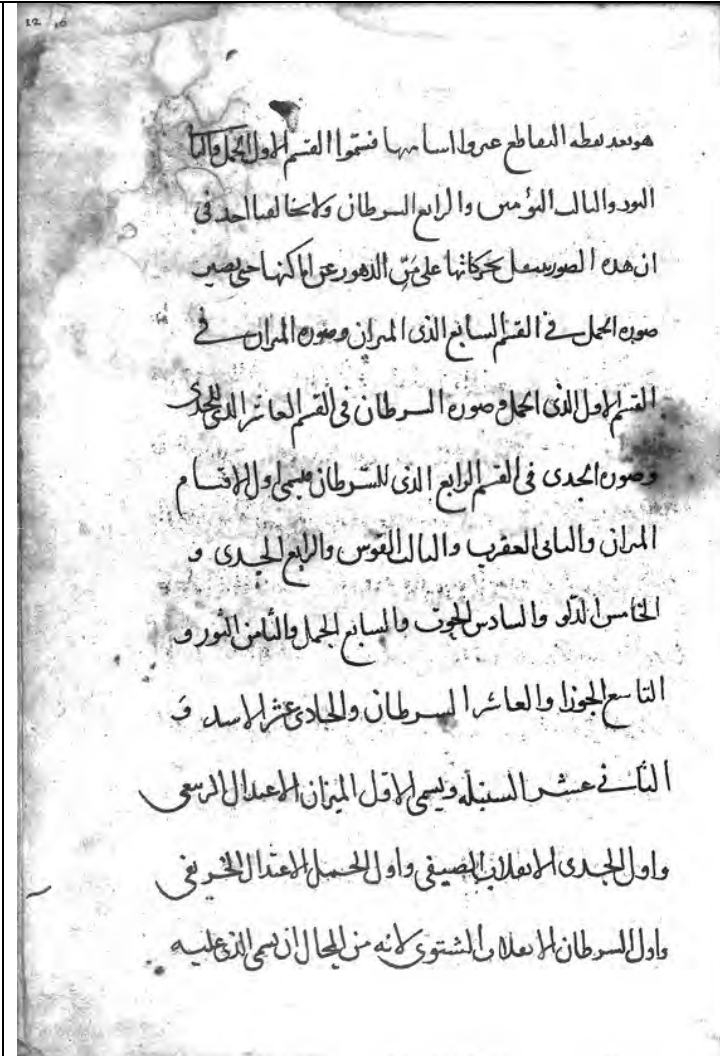 12
هو بعد نقطه التقاطع غيروا اسامیها فسموا القسم الاول الحمل والثا
الثور والثالث التؤمين والرابع السرطان ولا يخالفنا احد في
ان هذه الصور تنتقل بحركاتها على مَرّ الدهور عن اماكنها حتى يصير
صوره الحمل في القسم السابع الذى الميزان وصوره الميزان في
القسم الاول الذى الحمل وصوره السرطان في القسم العاشر الذى للجدى
وصوره الجدى في القسم الرابع الذى للسّرطان فيسمى اول الاقسام
الميزان والثانى العقرب والثالث القوس والرابع الجدى و
الخامس الدّلو والسادس الحوت والسابع الحمل والثامن الثور و
التاسع الجوزا والعاشر السرطان والحادى عشر الاسد وَ
الثانى عشر السنبله ويسمى الاول الميزان الاعتدال الربيعى
واول الجدى الانقلاب الصيفى واول الحمل الاعتدال الخريفى
واول السرطان الانقلاب الشتوى لانه من المحال ان يسمى الذى عليه